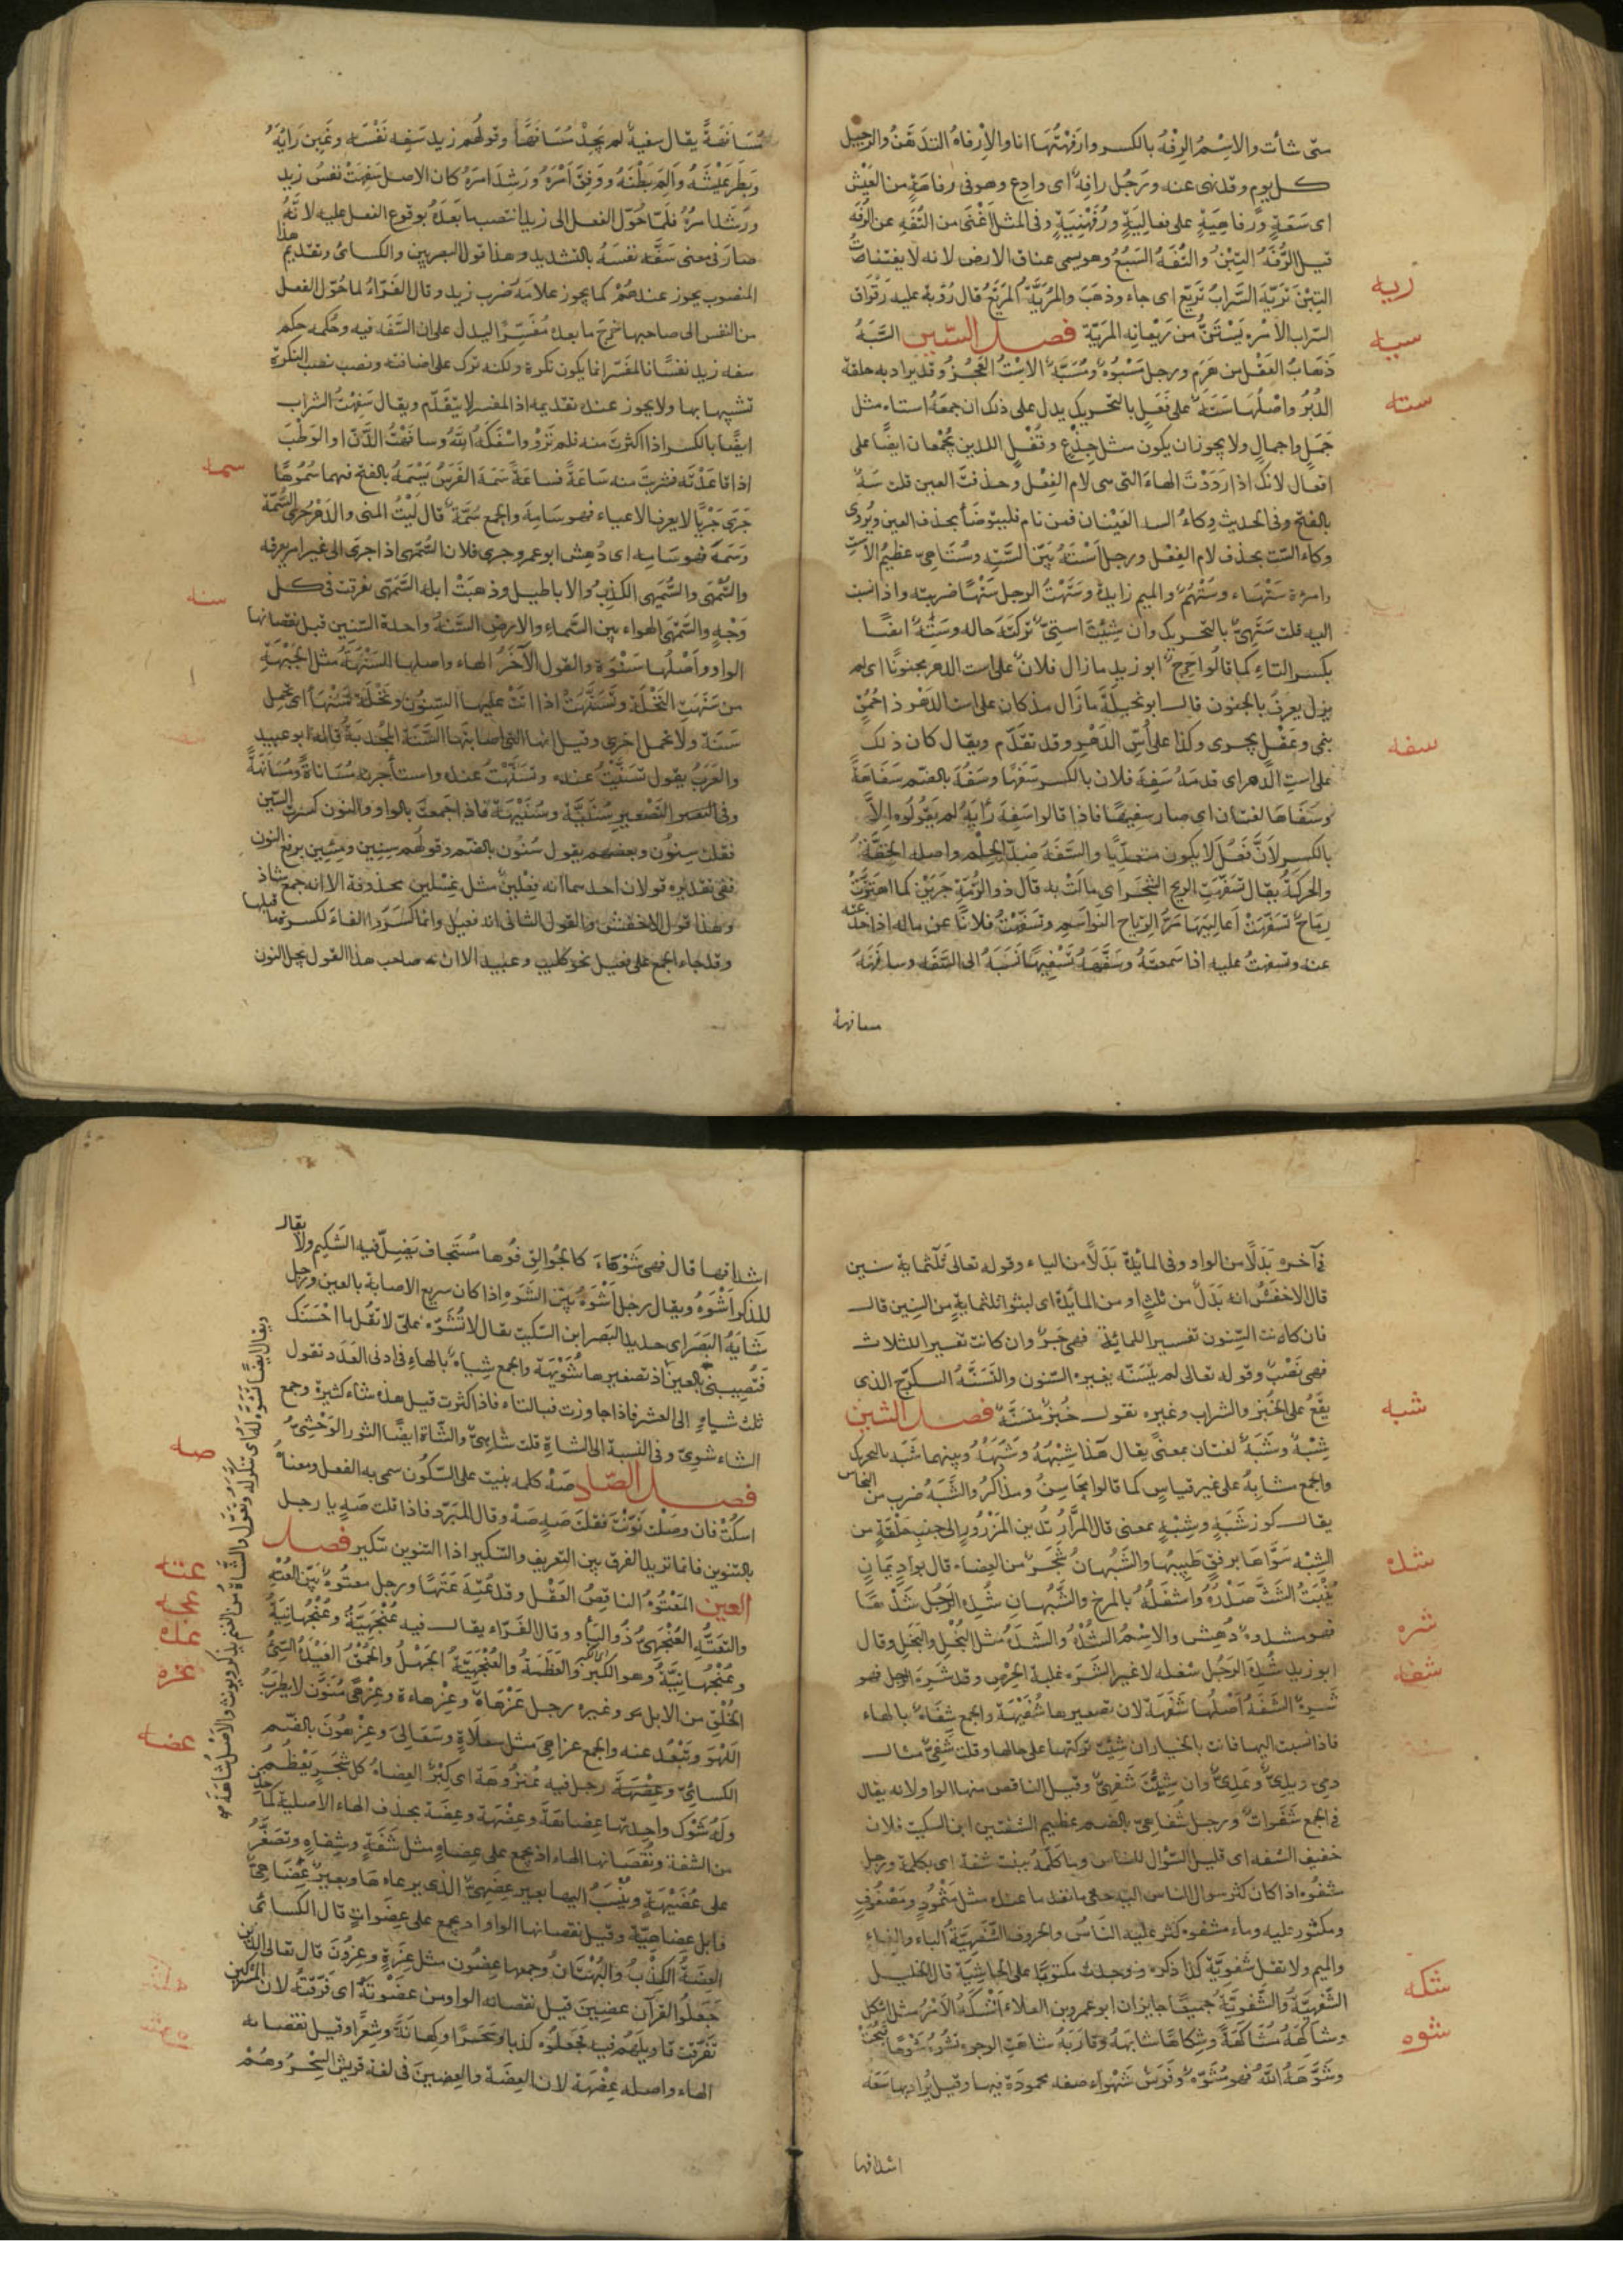 متى شأت والاسم الرفه بالكسر وارفهتها انا والارفاه التدهن والترجيل
كل يوم وقد نهى عنه ورجل رافه اى وادع وهو فى رفاهة من العيش
اى سعة ورفاهية على فعالية ورفهنية وفى المثل اغنى من التفه عن الرفه
قيل الرفه التبن والتفه السبع وهو يسمى عناق الارض لانه لا يقتات
ريه
التبن تريه السراب تريع اى جاء وذهب والمريه المريع قال رؤبة عليه رقراق
السراب الامره يستن من ريعانه المريه فصل السين السبه
سبه
ذهاب العقل من هرم ورجل مسبوه ومسبه الاست العجز وقد يراد به حلقة
سته
الدبر واصلها سته على فعل بالتحريك يدل على ذلك ان جمعه استاه مثل
جمل واجمال ولا يجوز ان يكون مثل جذع وقفل اللذين يجمعان ايضا على
افعال لانك اذا رددت الهاء التى هى لام الفعل وحذفت العين قلت سه
بالفتح وفى الحديث وكاء السه العينان فمن نام فليتوضأ بحذف العين ويروى
وكاء الست بحذف لام الفعل ورجل استه بين السته وستاهى عظيم الاست
وامرءة ستهاء وستهم والميم زايدة وستهت الرجل ستها ضربت واذا نسبت
اليه قلت ستهى بالتحريك وان شئت استى تركته حاله وسته ايضا
بكسر التاء كما قالوا حرح ابو زيد ما زال فلان على است الدهر مجنونا اى لم
يزل يعرف بالجنون قال ابو نخيلة ما زال مذ كان على است الدهر ذا حمق
ينمى وعقل يجرى وكذا على اس الدهر وقد تقدم ويقال كان ذلك
سفه
على است الدهر اى قدمه سفه فلان بالكسر سفها وسفه بالضم سفاهة
وسفاها لغتان اى صار سفيها فاذا قالوا سفه رايه لم يقولوه الا
بالكسر لان فعل لا يكون متعديا والسفه ضد الحلم واصله الخفة
والحركة يقال تسفهت الريح الشجر اى مالت به قال ذو الرمة جرين كما اهتزت
رماح تسفهت اعاليها مر الرياح النواسم وتسفهت فلانا عن ماله اذا خدعته
عنه وتسفهت عليه اذا سمعته وسفهه تسفيها نسبه الى السفه وسافهه
مسافهة
مسافهة يقال سفيه لم يجد مسافها وقولهم زيد سفه نفسه وغبن رايه
وبطر عيشه والم بطنه ووفق امره ورشد امره كان الاصل سفهت نفس زيد
ورشد امره فلما حول الفعل الى زيد انتصب ما بعده بوقوع الفعل عليه لانه
صار فى معنى سفه نفسه بالتشديد وهذا قول البصريين والكسائى وتقديم هذا
المنصوب يجوز عندهم كما يجوز غلامه ضرب زيد وقال الفراء لما حول الفعل
من النفس الى صاحبها خرج ما بعده مفسرا ليدل على ان السفه فيه وحكمه حكم
سفه زيد نفسا فالمفسر انما يكون نكرة ولكنه ترك على اضافته ونصب نصب النكرة
تشبيها بها ولا يجوز عنده تقديمه اذ المفسر لا يتقدم ويقال سفهت الشراب
ايضا بالكسر اذا اكثرت منه فلم ترو واسفكه الله وسافهت الدن او الوطب
سمه
اذا قاعدته فشربت منه ساعة فساعة سمه الفرس يسمه بالفتح فيهما سموها
جرى جريا لا يعرف الاعياء فهو سامه والجمع سمه قال ليت المنى والدهر جرى السمه
وسمه فهو سامه اى دهش ابو عمرو جرى فلان السمهى اذا جرى الى غير امر يعرفه
سنه
والسمهى والسميهى الكذب والاباطيل وذهبت ابله السمهى تفرقت فى كل
وجه والسمهى الهواء بين السماء والارض السنة واحدة السنين قبل نقصانها
الواو واصلها سنوة والقول الاخر الهاء واصلها السنهة مثل الجبهة
من سنهت النخلة وتسنهت اذا اتت عليها السنون ونخلة سنهاء اى تحمل
سنة ولا تحمل اخرى وقيل انها التى اصابتها السنة المجدبة قاله ابو عبيد
والعرب يقول تسنيت عنده وتسنهت عنده واستأجرته مساناة ومسانهة
وفى التصغير سنية وسنيهة فاذا جمعت بالواو والنون كسرت السين
فقلت سنون وبعضهم يقول سنون بالضم وقولهم سنين ومئين برفع النون
ففى تقديره قولان احدهما انه فعلين مثل غسلين محذوفة الا انه جمع شاذ
وهذا قول الاخفش والقول الثانى انه فعيل وانما كسروا الفاء لكسرة ما قبلها
وقد جاء الجمع على فعيل نحو كليب وعبيد الا ان صاحب هذا القول يجعل النون
فى آخره بدلا من الواو وفى المائة بدلا من الياء وقوله تعالى ثلثماية سنين
قال الاخفش انه بدل من ثلث او من المائة اى لبثوا ثلثماية من السنين قال
فان كانت السنون تفسيرا للمائة فهى جر وان كانت تفسيرا للثلاث
فهى نصب وقوله تعالى لم يتسنه يغيره السنون والتسنه التكرج الذى
شبه
يقع على الخبز والشراب وغيره تقول خبز متسنه فصل الشين
شبه وشبه لغتان بمعنى يقال هذا شبهه وشبهه وبينهما شبه بالتحريك
والجمع مشابه على غير قياس كما قالوا محاسن ومذاكر والشبه ضرب من النحاس
يقال كوز شبه وشبه بمعنى قال المرار تدين لمزرور الى جنب حلقة من
شده
الشبه سواها برفق طبيبها والشبهان شجر من العضاه قال بواد يمان
ينبت الشث صدره واسفله بالمرخ والشبهان شده الرجل شدها
شره
فهو مشدوه دهش والاسم الشده والشده مثل البخل والبخل وقال
شفه
ابو زيد شده الرجل شغل لا غير الشره غلبة الحرص وقد شره الرجل فهو
شره الشفة اصلها شفهة لان تصغيرها شفيهة والجمع شفاه بالهاء
فاذا نسبت اليها فانت بالخيار ان شئت تركتها على حالها وقلت شفى مثال
دمى ويدى وعدى وان شئت شفهى وقيل الناقص منها الواو لانه يقال
فى الجمع شفوات ورجل شفاهى بالضم عظيم الشفتين ابن السكيت فلان
خفيف الشفه اى قليل السؤال للناس وما كلمه ببنت شفة اى بكلمة ورجل
مشفوه اذا كان كثر سوال الناس اليه حتى نفد ما عنده مثل مثمود ومضفوف
ومكثور عليه وماء مشفوه كثر عليه الناس والحروف الشفهية الباء والفاء
والميم ولا تقل شفوية كذا ذكره ووجدت مكتوبا على الحاشية قال الخليل
شكه
الشفهية والشفوية جميعا جايزان ابو عمرو بن العلاء اشكه الامر مثل اشكل
شوه
وشاكهه مشاكهة وشكاها شابهه وقاربه شاهت الوجوه تشوه شوها قبحت
وشوهه الله فهو مشوه وفرس شوهاء صفه محمودة فيها وقيل يراد بها سعة
اشداقها
اشداقها قال فهى شوهاء كالجوالق فوها مستجاف يضل فيه الشكيم ولا يقال
للذكر اشوه ويقال رجل اشوه بين الشوه اذا كان سريع الاصابة بالعين ورجل
شايه البصر اى حديد البصر ابن السكيت يقال لا تشوه على لا تقل ما احسنك
فتصيبنى بالعين اذ تصغيرها شويهة والجمع شياه بالهاء فى ادنى العدد تقول
ثلث شياه الى العشر فاذا جاوزت فبالتاء فاذا كثرت قيل هذه شاء كثيرة وجمع
الشاء شوى وفى النسبة الى الشاة قلت شاهى والشاة ايضا الثور الوحشى
صه
فصل الصاد صه كلمه بنيت على السكون سمى به الفعل ومعناه
اسكت فان وصلت نونت فقلت صه صه وقال المبرد فاذا قلت صه يا رجل
بالتنوين فانما تريد الفرق بين التعريف والتنكير اذا التنوين تنكير فصل
عته
العين المعتوه الناقص العقل وقد عته عتها ورجل معتوه بين العته
عجه
والتعته العنجهى ذو البأو وقال الفراء يقال فيه عنجهية وعنجهانية
عده
وعنجهانية وهو الكبر والعظمة والعنجهية الجهل والحمق العيده السئ
عزه
الخلق من الابل وغيره رجل عزهاة وعزهاءة وعزهى منون لا يطرب
اللهو وتبعد عنه والجمع عزاهى مثل سعلاة وسعالى وعزهون بالضم
عضه
الكسائى وعزهه رجل فيه عنزهوة اى كبر العضاه كل شجر يعظم
وله شوك واحدتها عضاهة وعضهة وعضة بحذف الهاء الاصلية كما حذف
من الشفة ونقصانها الهاء اذ يجمع على عضاه مثل شفة وشفاه وتصغر
على عضيهة وينسب اليها بعير عضهى الذى يرعاها وبعير عضاهى
فابل عضاهية وقيل نقصانها الواو اذ يجمع على عضوات قال الكسائى
العضة الكذب والبهتان وجمعها عضون مثل عزة وعزون قال تعالى الذين
جعلوا القرآن عضين قيل نقصانه الواو من عضوته اى فرقته لان المشركين
تفرقت اقاويلهم فيه فجعلوه كذبا وسحرا وكهانة وشعرا وقيل نقصانه
الهاء واصله عضهة لان العضة والعضين فى لغة قريش السحر وهم